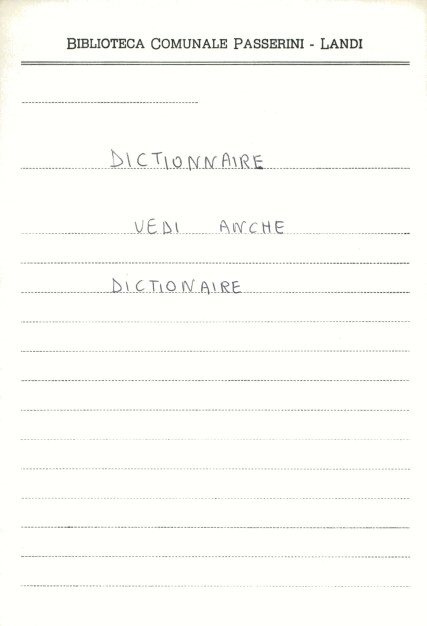 BIBLIOTECA COMUNALE PASSERINI - LANDI
DICTIONNAIRE
VEDI ANCHE
DICTIONAIRE